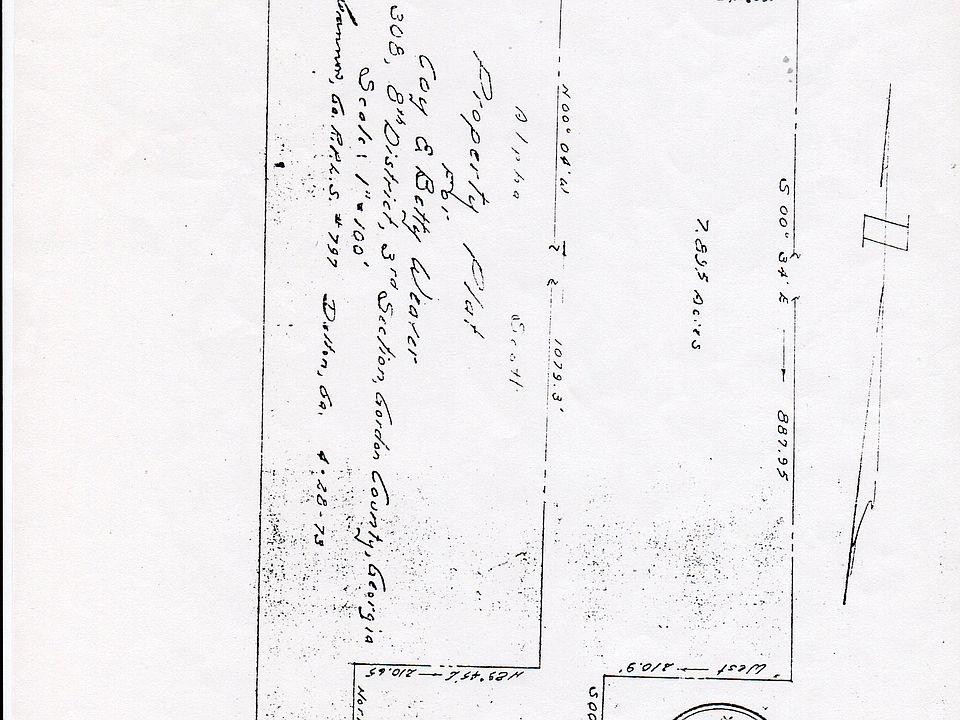 Property Plat
For
Coy & Betty Weaver
308, 8th District, 3rd Section, Gordon County, Georgia
Scale: 1" = 100'
Ga. R.P.L.S. #797 Dalton, Ga. 4-28-73
S 00° 34' E → 887.95
7.895 Acres
N 00° 04' W 1079.3'
West → 210.9'
N 89° 45' E → 210.65
S00
Nor